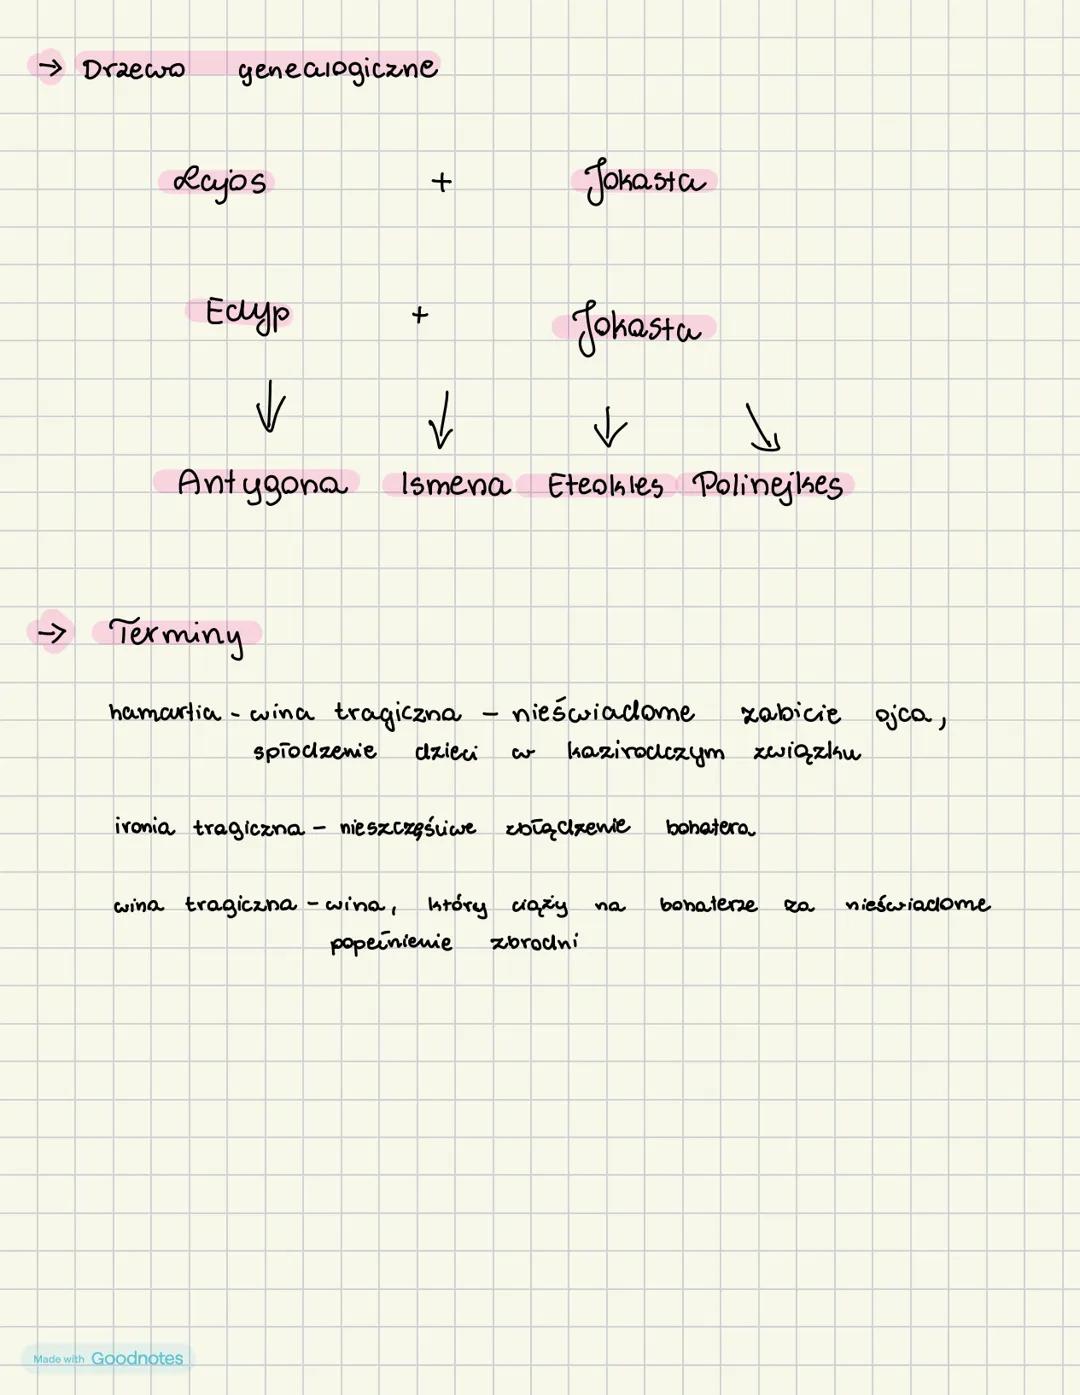 → Drzewo genealogiczne
Lajos + Jokasta
Edyp + Jokasta
Antygona Ismena Eteokles Polinejkes
→ Terminy
hamartia - wina tragiczna - nieświadome zabicie ojca,
spłodzenie dzieci w kazirodczym związku
ironia tragiczna - nieszczęśliwe zbłądzenie bohatera
wina tragiczna - wina, który ciąży na bohaterze za nieświadome
popełnienie zbrodni
Made with Goodnotes